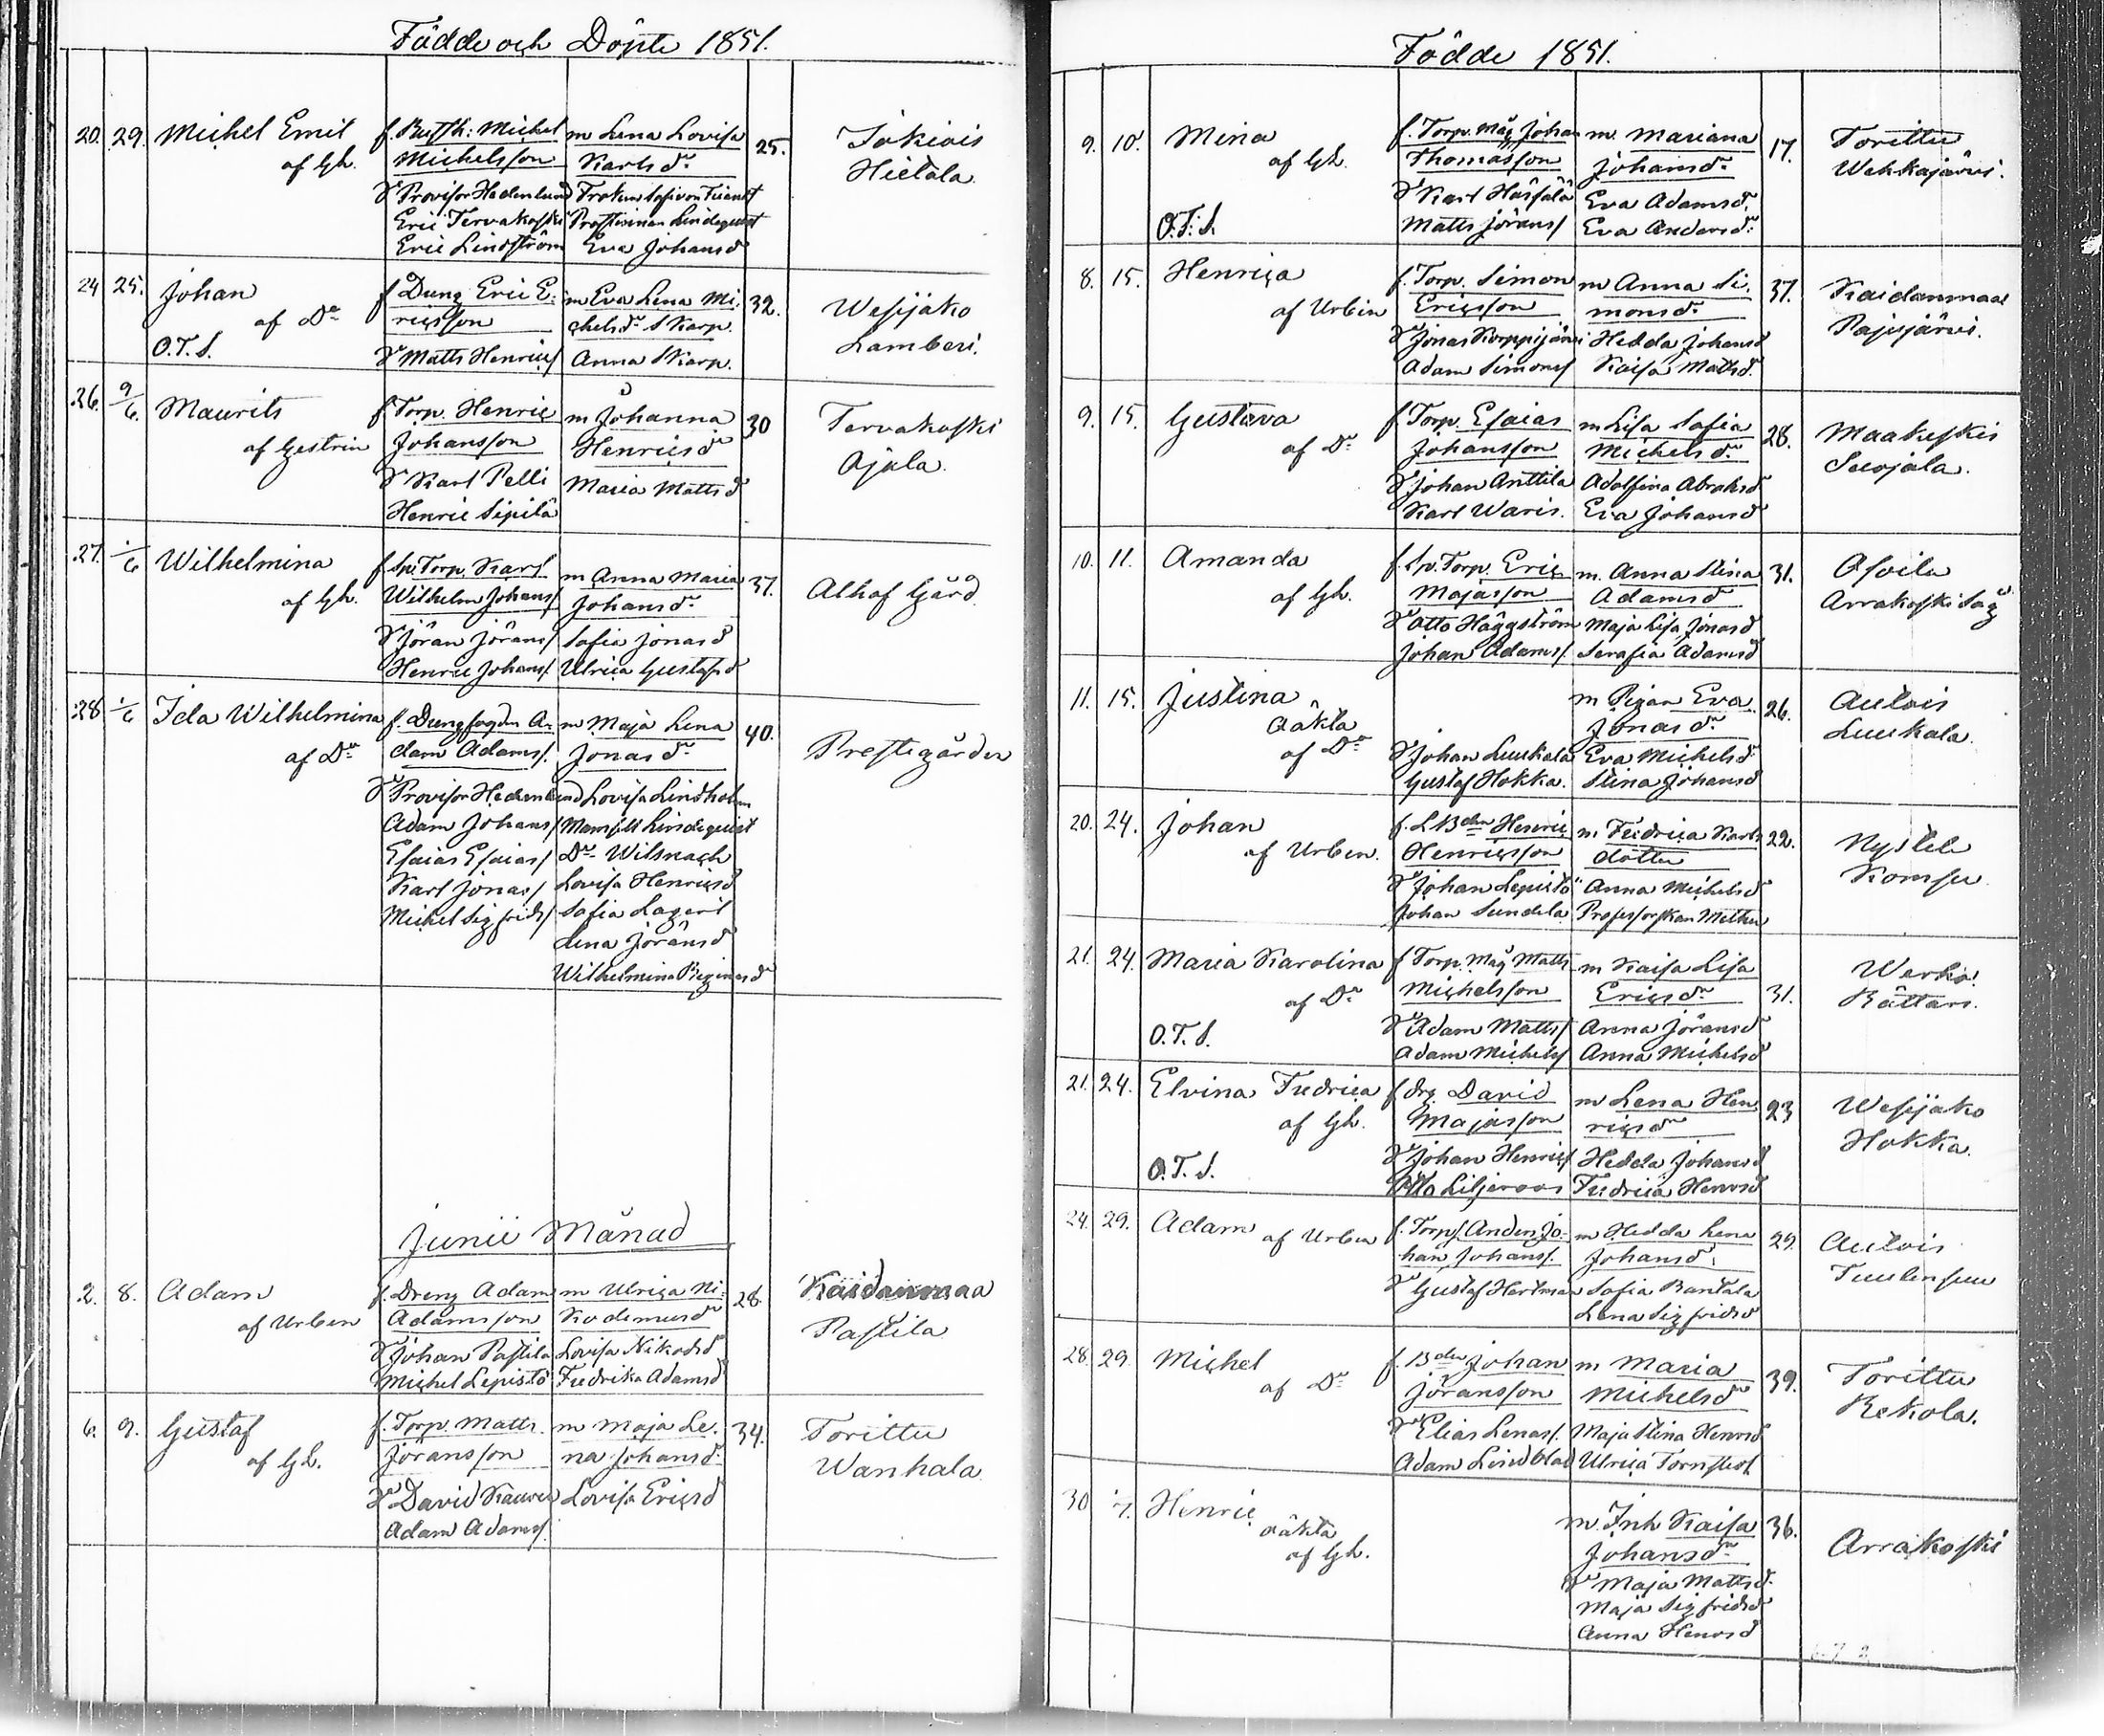 Födde och Döpte 1851.
20. 29. Michel Emil
af Gh.
f. Michel
Michelsson
Fr Provisor Hedenlund
Eric Tervakoski
Eric Lindström
m Lena Lovisa
Karlsdr
Prostinnan Lindequist
Eva Johansd
25.
Jokiois
Hietala
24 25. Johan
af Do
O.T.S.
f Dreng Eric E-
ricsson
Fr Matts Henrics/
m Eva Lena Mi-
chelsdr Skarp.
Anna Skarp.
32.
Wesijako
Lamberi.
26. 9/6. Maurits
af Gestrin
f. Torp. Henric
Johansson
Fr Karl Pelli
Henric Sipilä
m Johanna
Henricsd
Maria Mattsd
30
Tervakoski
Ojala.
27. 1/6 Wilhelmina
af Gh.
f Sp. Torp. Karl
Wilhelm Johans/
Fr Jöran Jörans/
Henric Johans/
m Anna Maria
Johansdr
Sofia Jonasd
Ulrica Gustafsd
37.
Alhof Gård
28 1/6 Ida Wilhelmina
af Do
f. Drengfogden A-
dam Adams/.
Fr Provisor Hedenlund
Adam Johans/
Esaias Esaias/
Karl Jonas/
Michel Sigfrids/
m Maja Lena
Jonasd
Lovisa Lindholm
Mamsell Lindequist
Do Wilsnach
Lovisa Henricsd
Sofia Lageri
Lena Jöransd
Wilhelmina Reginasd
40.
Prestgården
Junii Månad
2. 8. Adam
af Urbin
f. Dreng Adam
Adamsson
Fr Johan Pastila
Michel Lepistö
m Ulrica Ni-
kodemusd
Lovisa Nikodsd
Fredrika Adamsd
28.
Kaidanmaa
Pastila
6. 9. Gustaf
af Gh.
f. Torp. Matts
Jöransson
Fr David
Adam Adams/.
m Maja Le-
na Johansd.
Lovisa Ericsd
34.
Torittu
Wanhala
Födde 1851.
9. 10. Mina
af Gh.
O.T.S.
f. Torp. Måg Johan
Thomasson
Fr Karl
Matts Jörans/
m. Mariana
Johansdr
Eva Adamsd.
Eva Andersdr
17.
Torittu
Wehkajärvi.
8. 15. Henrica
af Urbin
f. Torp. Simon
Ericsson
Fr Jonas Korppijärvi
Adam Simons/
m Anna Si-
monsdr
Hedda Johansd
Kaisa Mattsd.
37.
Kaidanmaa
Pajujärvi.
9. 15. Gustava
af Do
f Torp. Esaias
Johansson
Fr Johan Anttila
Karl Waris.
m Lisa Sofia
Michelsdr
Adolfina Abrahsd
Eva Johansd
28.
Maakeskis
Seiojala.
10. 11. Amanda
af Gh.
f. Sp. Torp. Eric
Majasson
Fr Otto Häggström
Johan Adams/
m. Anna Stina
Adamsd
Maja Lisa Jonasd
Serafia Adamsd
31.
Asvila
Arrakoski Såg
11. 15. Justina
oäkta
af Do
Fr Johan Luukala
Gustaf Hokka.
m Pigan Eva
Jonasdr
Eva Michelsd.
Stina Johansd
26.
Autois
Luukala.
20. 24. Johan
af Urbin.
f. L Bden Henric
Henricsson
Fr Johan Lepistö
Johan Sundila
m. Fredrica Karls
dotter
Anna Michelsd
Professorskan Mether
22.
Nystele
Komsu
21. 24. Maria Karolina
af Do
O.T.S.
f Torp. Måg Matts
Michelsson
Fr Adam Matts/
Adam Michels/
m Kaisa Lisa
Ericsdr
Anna Jöransd
Anna Michelsd
31.
Werho.
Rättäri.
21. 24. Elvina Fredrica
af Gh.
O.T.S.
f drg. David
Majasson
Fr Johan Henrics/
Otto Liljeroos
m Lena Hen-
ricsdr
Hedda Johansd
Fredrica Henrsd
23
Wesijako
Hokka.
24. 29. Adam af Urbin
f. Torps/. Anders Jo-
han Johans/.
Fr Gustaf Hartman
m Hedda Lena
Johansd.
Sofia Rantala
Lena Sigfridsd
29.
Autois
Tuulensuu
28. 29. Michel
af Do
f. Bden Johan
Jöransson
Fr Elias Lenas/.
Adam Lindblad
m Maria
Michelsdr
Maja Stina Henrsd
Ulrica Törnstedt
39.
Torittu
Rekola.
30 1/7. Henric
oäkta
af Gh.
m. Inh Kaisa
Johansdr
Fr Maja Mattsd.
Maja Sigfridsd
Anna Henrsd
36.
Arrakoski